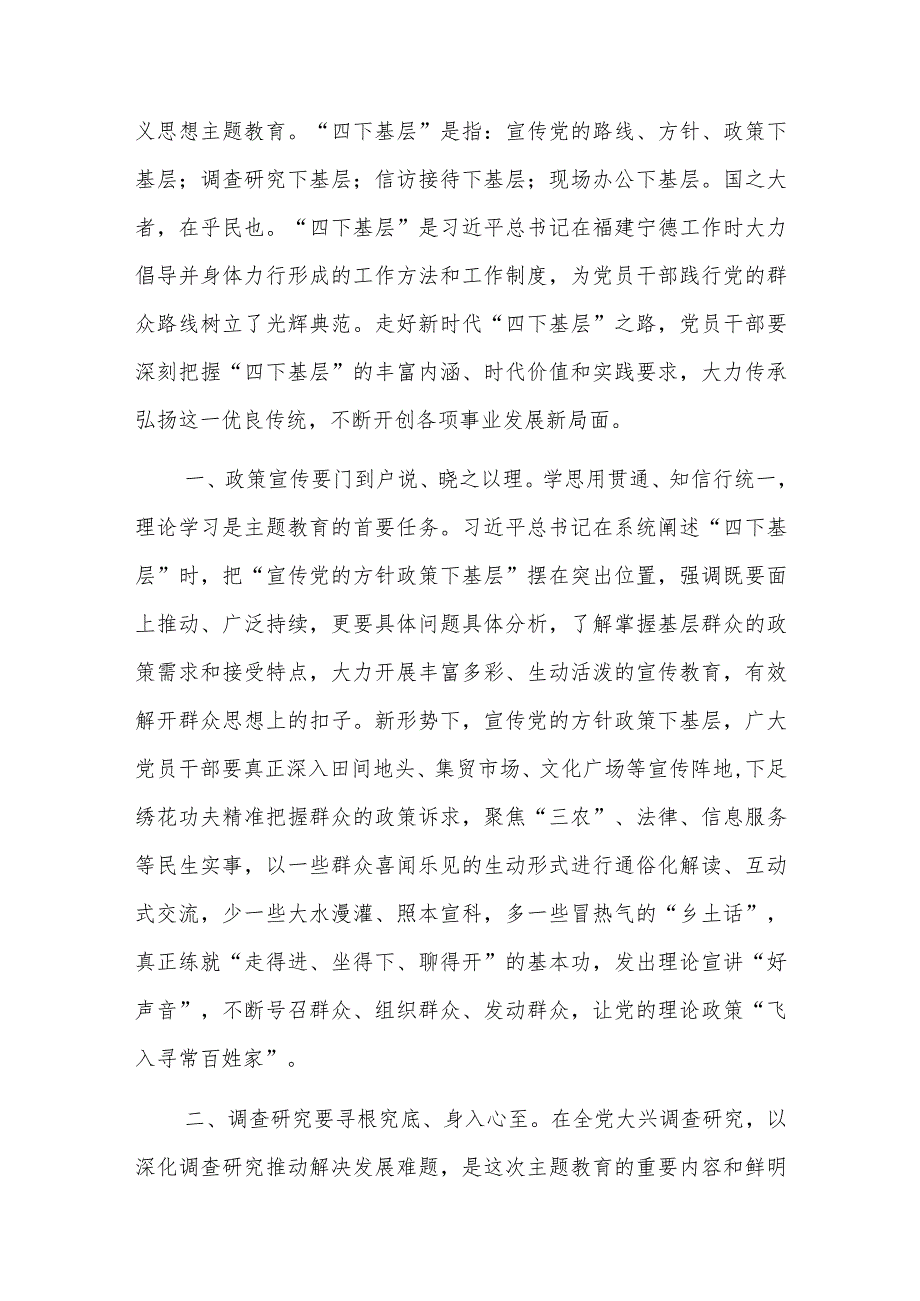 义思想主题教育。“四下基层”是指：宣传党的路线、方针、政策下
基层；调查研究下基层；信访接待下基层；现场办公下基层。国之大
者，在乎民也。“四下基层”是习近平总书记在福建宁德工作时大力
倡导并身体力行形成的工作方法和工作制度，为党员干部践行党的群
众路线树立了光辉典范。走好新时代“四下基层”之路，党员干部要
深刻把握“四下基层”的丰富内涵、时代价值和实践要求，大力传承
弘扬这一优良传统，不断开创各项事业发展新局面。
一、政策宣传要门到户说、晓之以理。学思用贯通、知信行统一，
理论学习是主题教育的首要任务。习近平总书记在系统阐述“四下基
层”时，把“宣传党的方针政策下基层”摆在突出位置，强调既要面
上推动、广泛持续，更要具体问题具体分析，了解掌握基层群众的政
策需求和接受特点，大力开展丰富多彩、生动活泼的宣传教育，有效
解开群众思想上的扣子。新形势下，宣传党的方针政策下基层，广大
党员干部要真正深入田间地头、集贸市场、文化广场等宣传阵地,下足
绣花功夫精准把握群众的政策诉求，聚焦“三农”、法律、信息服务
等民生实事，以一些群众喜闻乐见的生动形式进行通俗化解读、互动
式交流，少一些大水漫灌、照本宣科，多一些冒热气的“乡土话”，
真正练就“走得进、坐得下、聊得开”的基本功，发出理论宣讲“好
声音”，不断号召群众、组织群众、发动群众，让党的理论政策“飞
入寻常百姓家”。
二、调查研究要寻根究底、身入心至。在全党大兴调查研究，以
深化调查研究推动解决发展难题，是这次主题教育的重要内容和鲜明